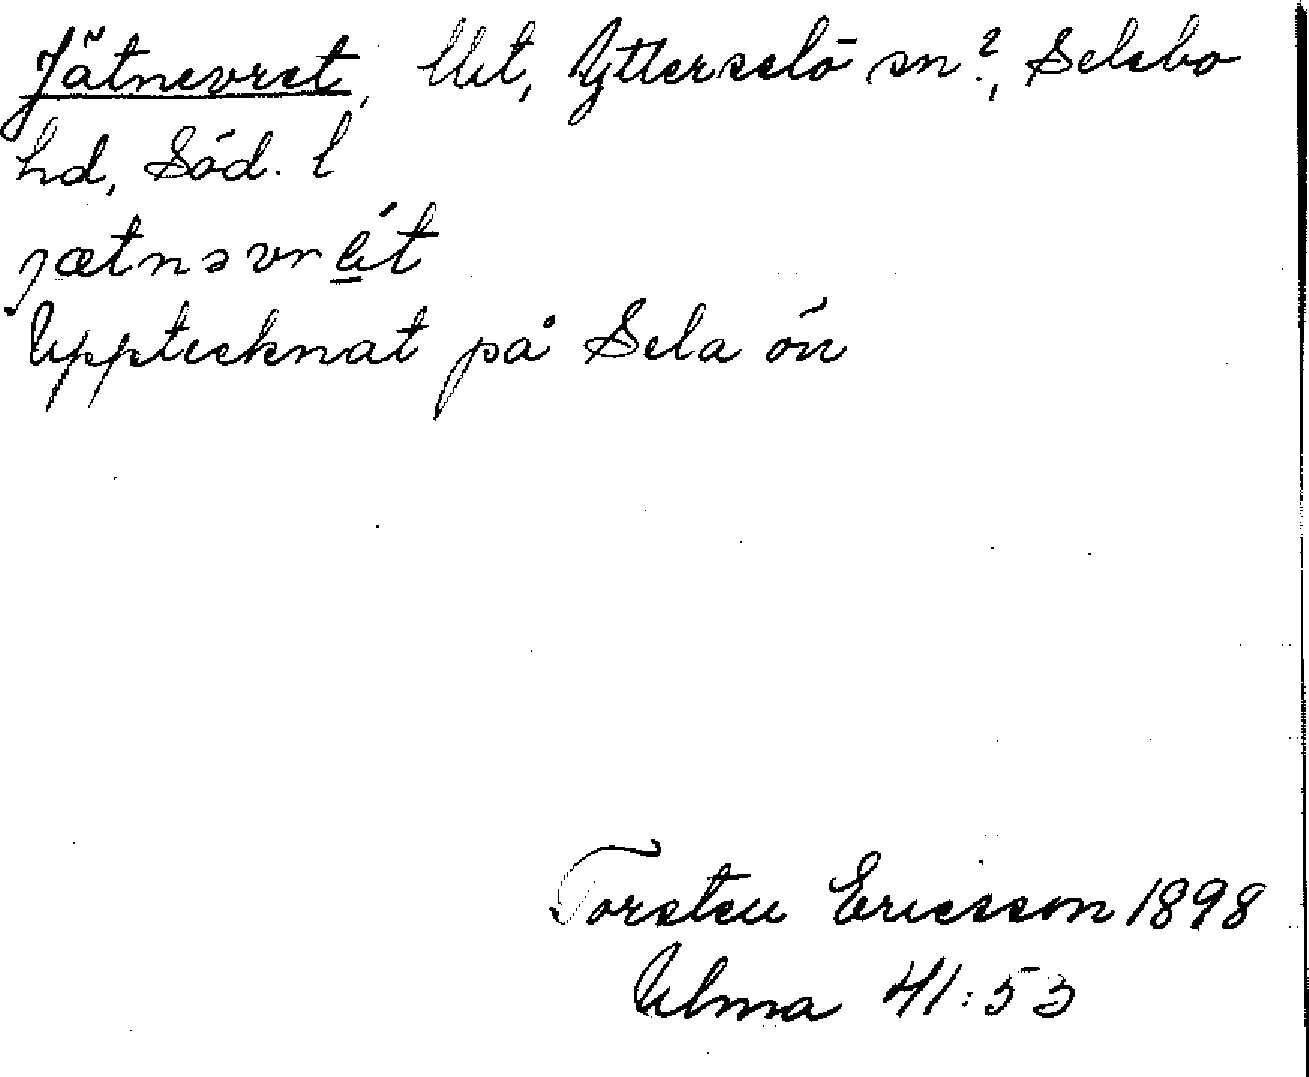 Jätnevret, Utt, Ytterselö sn?, Selebo
hd, Söd. l
jætnəvrét
Upptecknat på Selaön
Torsten Ericsson 1898
Ulma 41:53